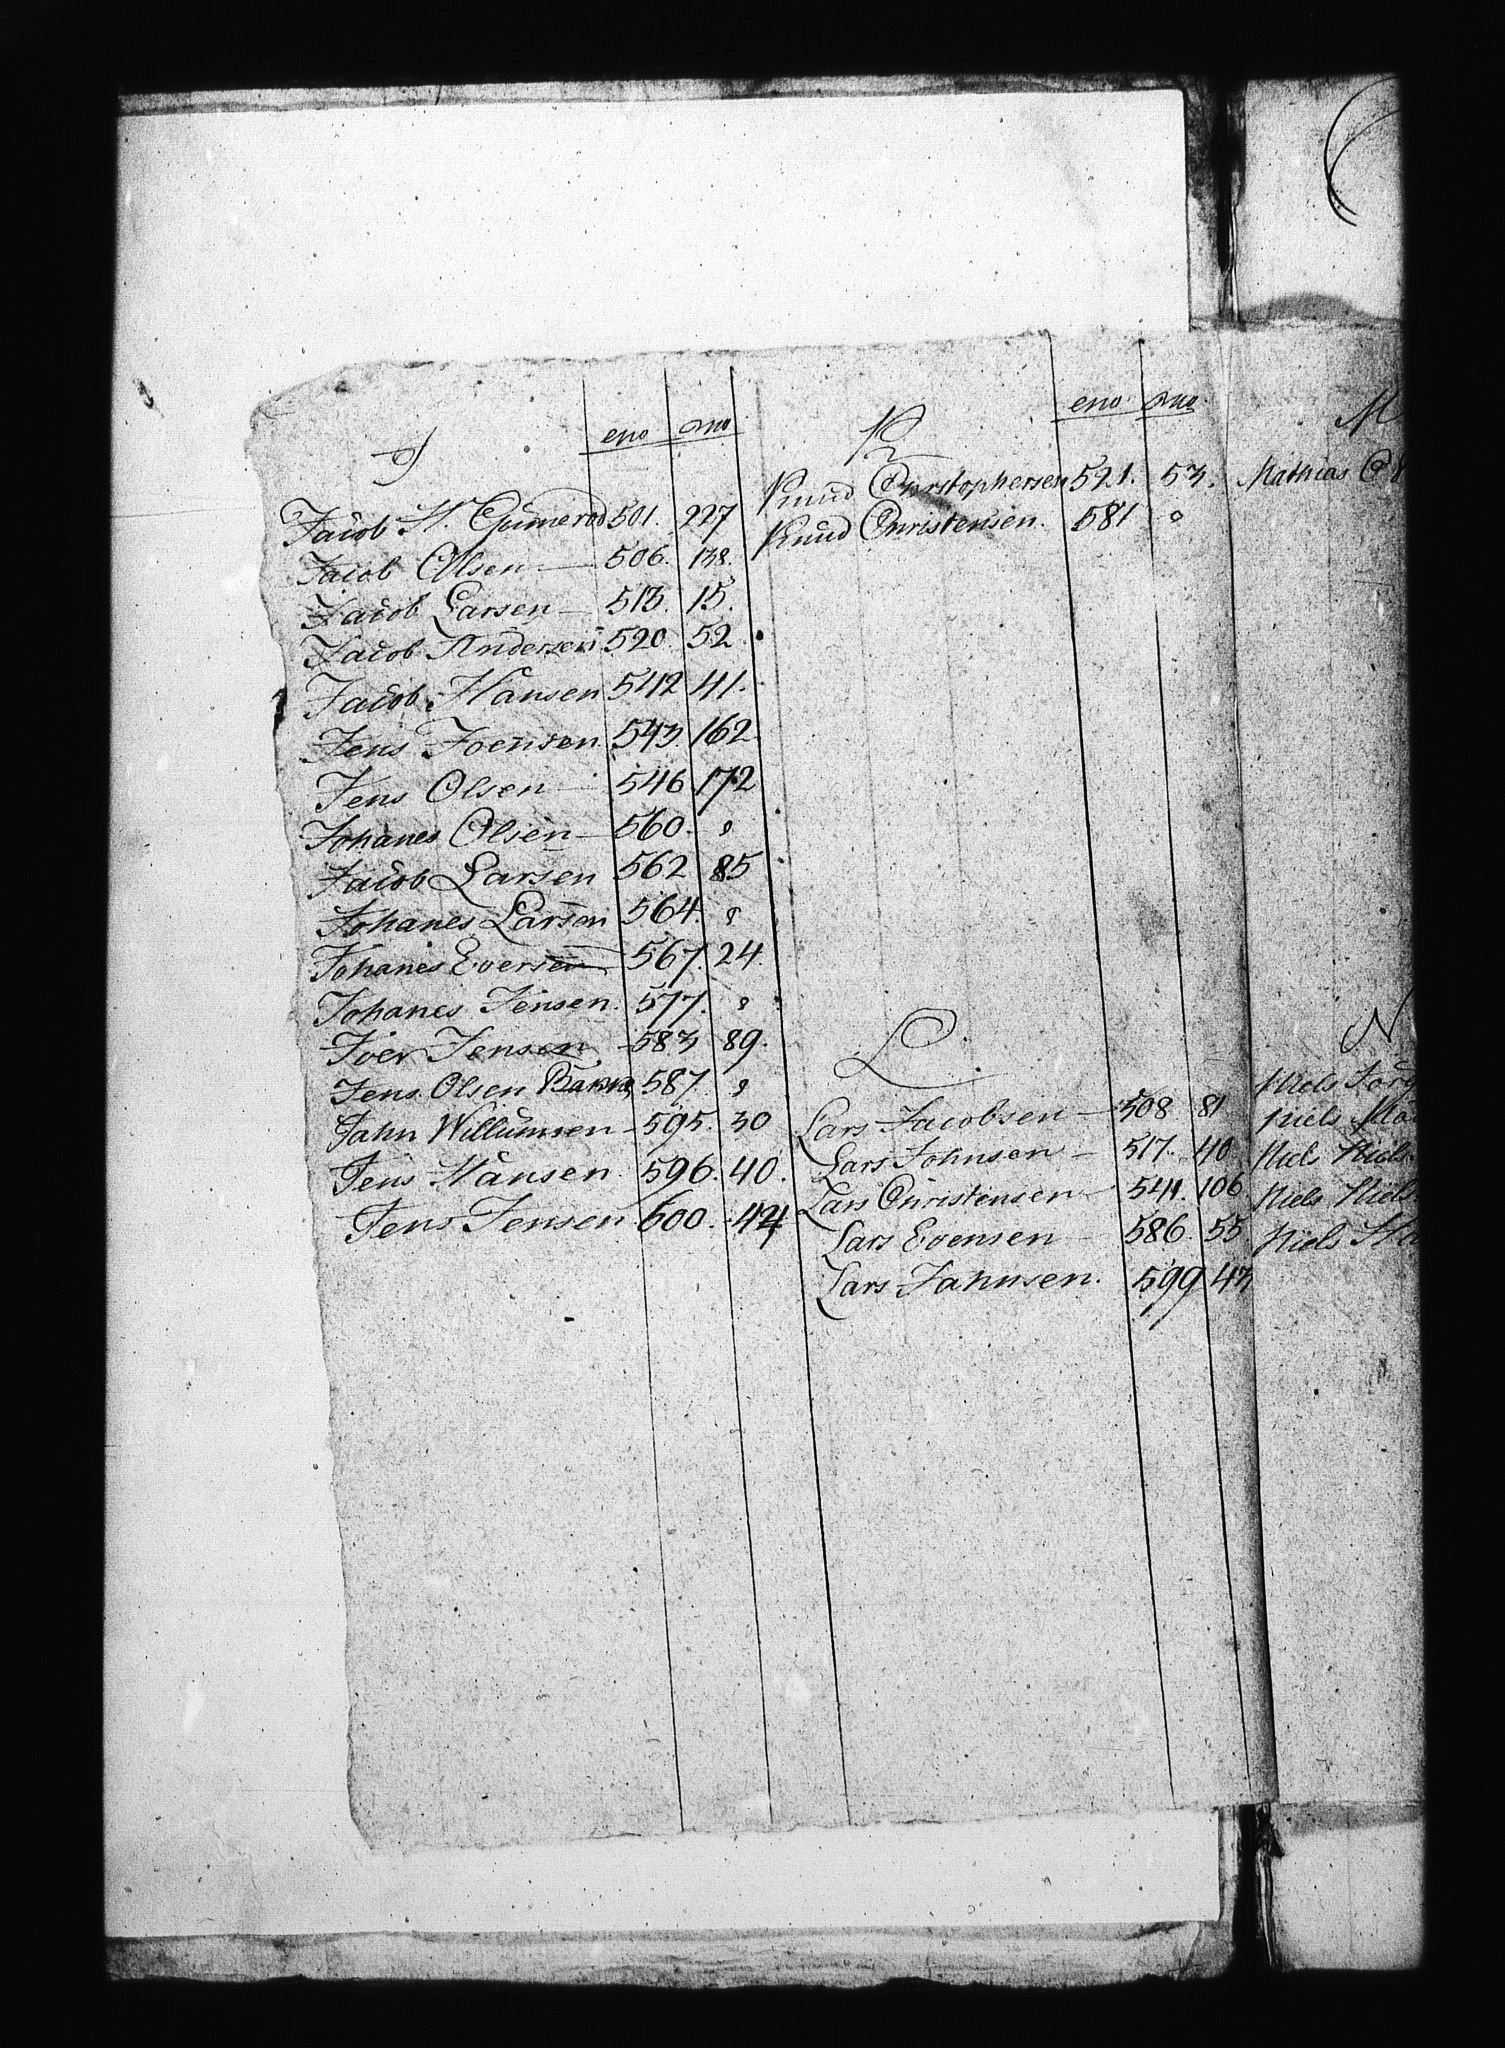 J eno
Jacob H. 501. 227
Jacob Olsen 506. 138.
Jacob Larsen 513. 15.
Jacob Andersen 520 52
Jacob Hansen 542 41.
Jens Joensen 543. 162
Jens Olsen 546 172
Johanes Olsen 560.
Jacob Larsen 562 85
Johanes Larsen 564.
Johanes Eversen 567. 24
Johanes Jensen. 577.
Iver Jensen 583 89.
Jens Olsen 587.
Jahn Willumsen 595. 30
Jens Hansen 596. 40.
Jens Jensen 600. 44
K eno
Knud Christophersen 521. 53.
Knud Christensen. 581
L.
Lars Jacobsen 508 81
Lars Johnsen 517. 40
Lars Christensen 541. 106
Lars Evensen 586. 55
Lars Jahnsen. 599 43
M
Mathias
N
Niels
Niels
Niels Niels
Niels Niels
Niels